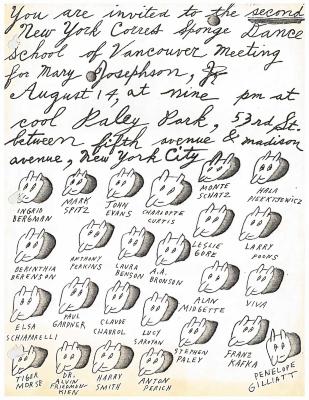 You are invited to the second
New York Corres Sponge Dance
School of Vancouver Meeting
for Mary Josephson, Jr
August 14, at nine pm at
cool Paley Park, 53rd St.
between fifth avenue & madison
avenue, New York City
INGRID BERGMAN
MARK SPITZ
JOHN EVANS
CHARLOTTE CURTIS
MONTE SCHATZ
HALA PIEKTIEWICZ
BERINTHIA BERENSON
ANTHONY PERKINS
LAURA BENSON
A.A. BRONSON
LESLIE GORE
LARRY POONS
ELSA SCHIAPARELLI
PAUL GARDNER
CLAUDE CHABROL
LUCY SAROYAN
ALAN MIDGETTE
VIVA
TIGER MORSE
DR. ALVIN FRIEDMAN-KIEN
HARRY SMITH
ANTON PERICH
STEPHEN PALEY
FRANZ KAFKA
PENELOPE GILLIATT